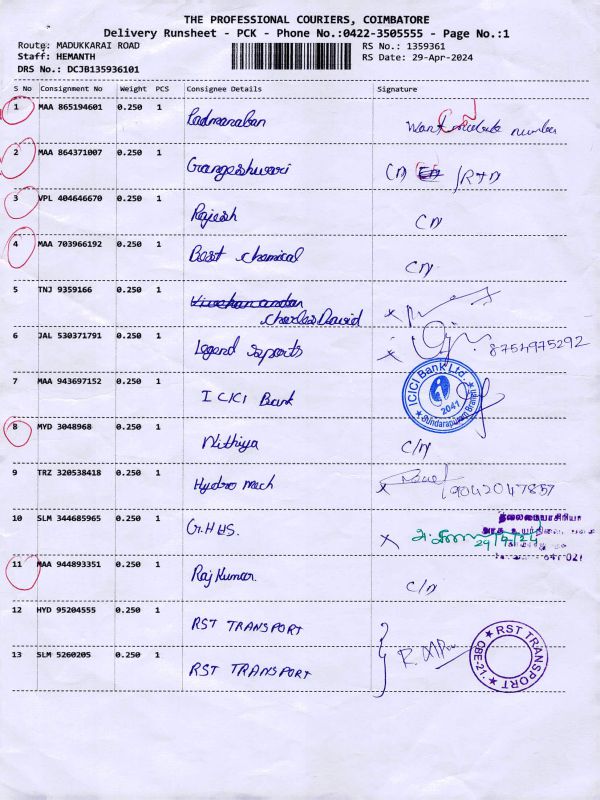 THE PROFESSIONAL COURIERS, COIMBATORE
Delivery Runsheet - PCK - Phone No.:0422-3505555 - Page No.:1
Route: MADUKKARAI ROAD RS No.: 1359361
Staff: HEMANTH RS Date: 29-Apr-2024
DRS No.: DCJB135936101
S No Consignment No Weight PCS Consignee Details Signature
1 MAA 865194601 0.250 1 Padmanaban Want number
2 MAA 864371007 0.250 1 C/D /RTD
3 VPL 404646670 0.250 1 Rajesh C/D
4 MAA 703966192 0.250 1 Best chamical C/D
5 TNJ 9359166 0.250 1 Charles David
6 JAL 530371791 0.250 1 Legend Sports 8754975292
7 MAA 943697152 0.250 1 ICICI Bank
ICICI Bank Ltd.
2041
Sundarapuram Branch
8 MYD 3048968 0.250 1 Nithiya C/D
9 TRZ 320538418 0.250 1 Hydro Mech 9042047857
10 SLM 344685965 0.250 1 G.H.HS. 29/4/24
தலைமையாசிரியர்
11 MAA 944893351 0.250 1 Raj Kumar. C/D
12 HYD 95204555 0.250 1 RST TRANSPORT
13 SLM 5260205 0.250 1 RST TRANSPORT
RST TRANSPORT
CBE-21.